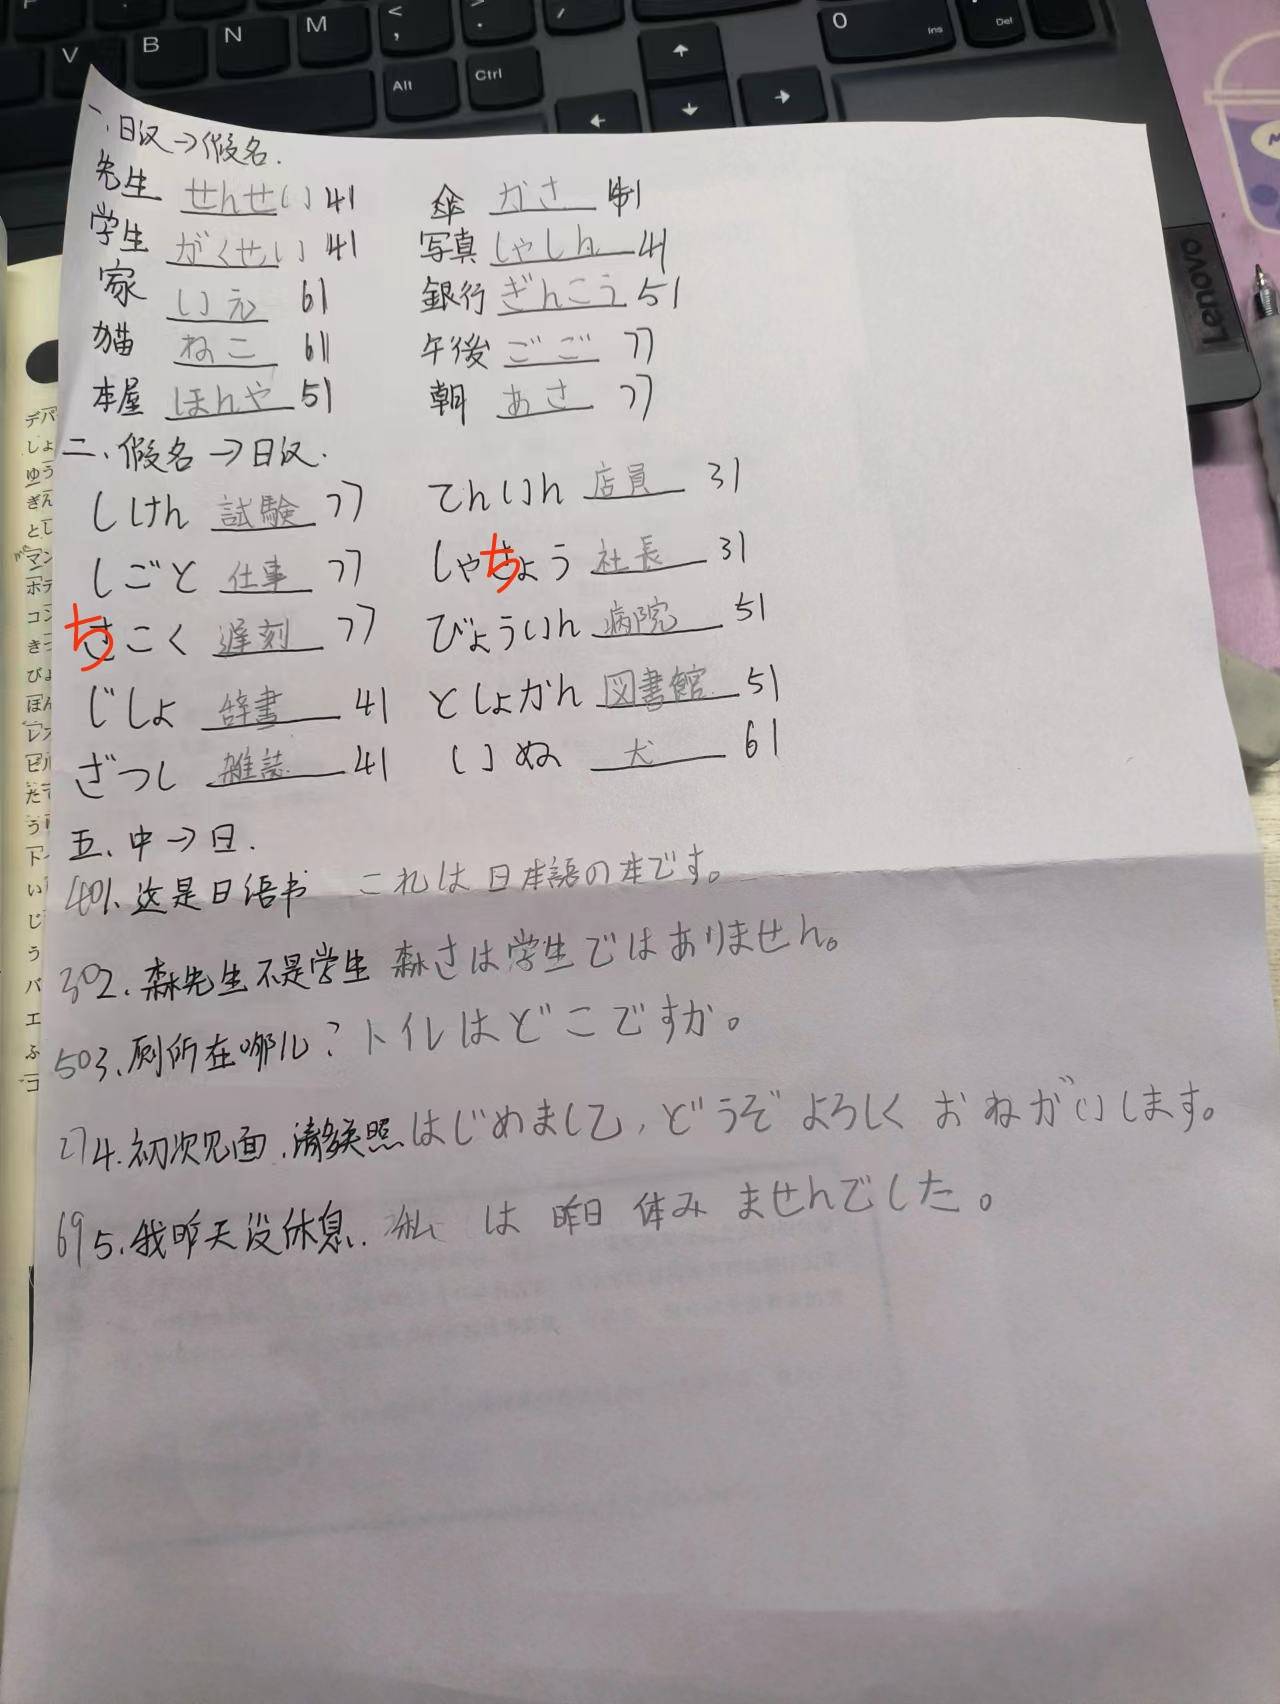 一、日汉→假名.
先生 せんせい 41 傘 かさ 41
学生 がくせい 41 写真 しゃしん 41
家 いえ 61 銀行 ぎんこう 51
猫 ねこ 61 午後 ごご 77
本屋 ほんや 51 朝 あさ 77
二、假名→日汉.
しけん 試験 77 てんいん 店員 31
しごと 仕事 77 しゃちょう 社長 31
ちこく 遅刻 77 びょういん 病院 51
じしょ 辞書 41 としょかん 図書館 51
ざつし 雑誌 41 いぬ 犬 61
五、中→日.
401、这是日语书 これは日本語の本です。
302、森先生不是学生 森さは学生ではありません。
503、厕所在哪儿? トイレはどこですか。
274、初次见面,请多关照 はじめまして,どうぞよろしくおねがいします。
695、我昨天没休息. 私は昨日休みませんでした。
V B N M < , . /
Alt Ctrl ↑ ← ↓ →
0 Ins Del
Lenovo
デパ
しょ
ゆう
ぎん
とし
マン
ホテ
コン
きっ
びょ
ほん
レス
ビル
たて
う
い
じ
う
バ
エ
ふ
コ